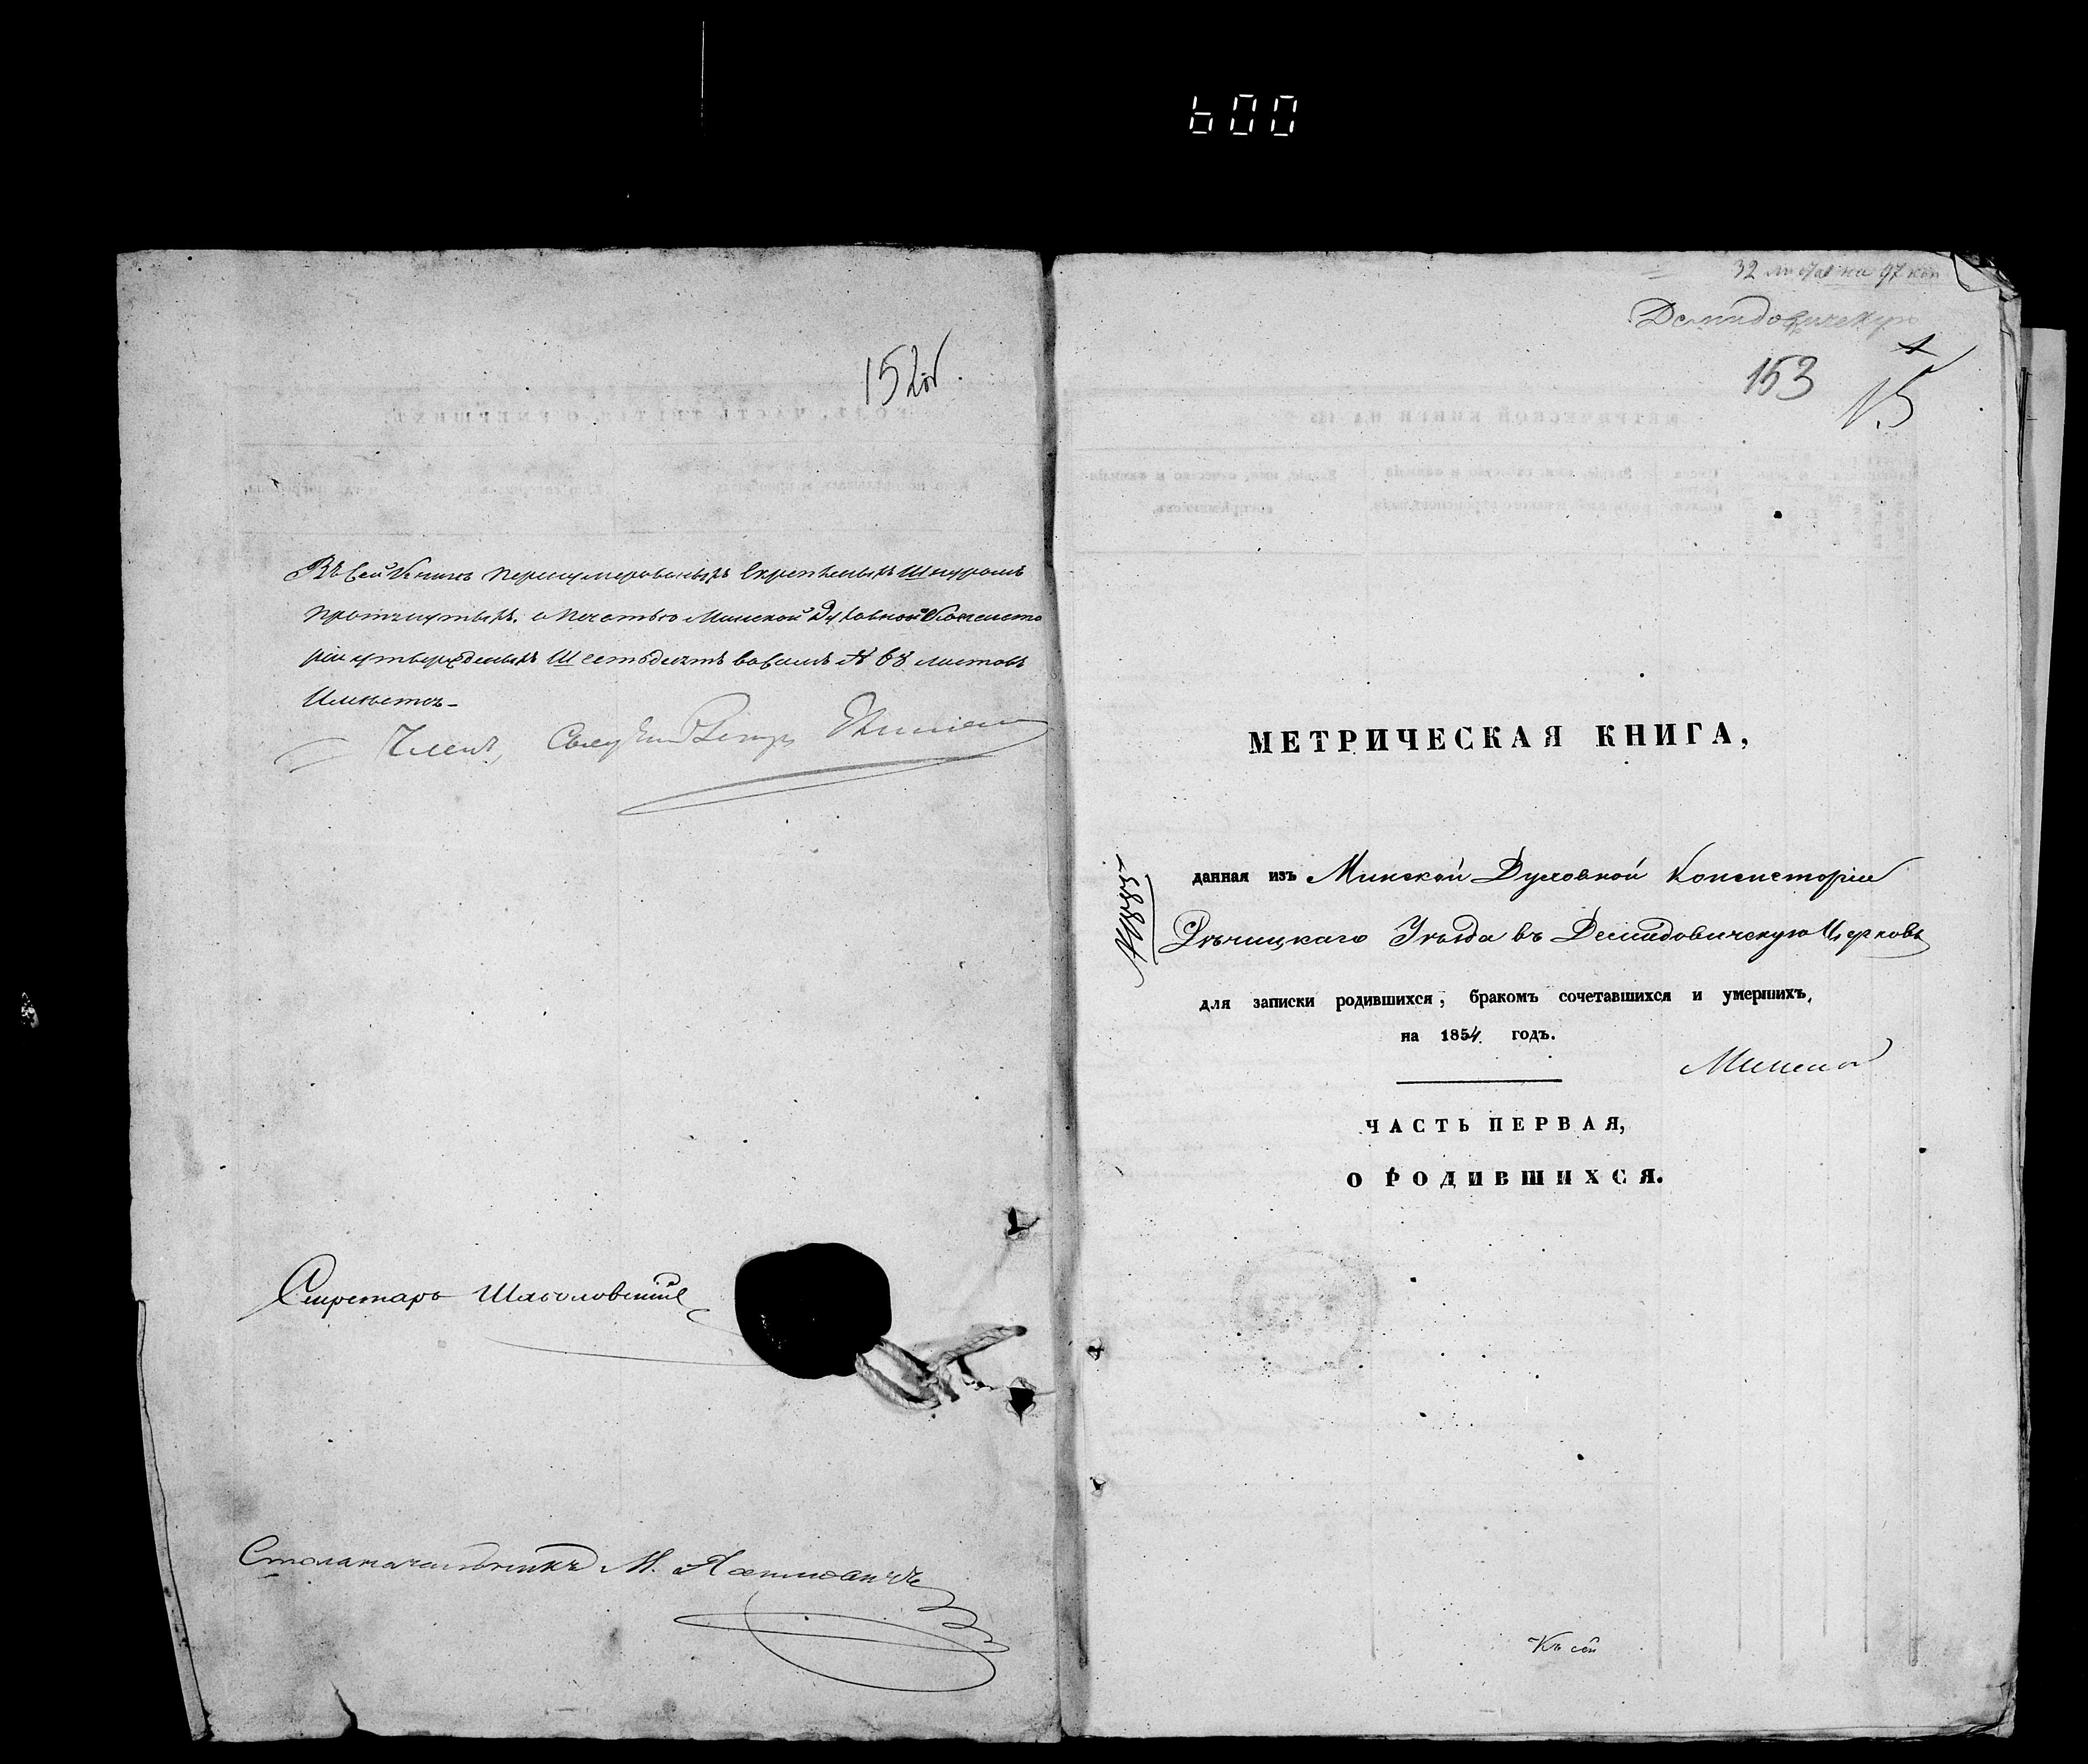 600
152об.
Въ сей Книгѣ перенумерованныхъ скрепленныхъ Шнуромъ
протянутыхъ, и печатью Минской Духовной Консисто
ріи утвержденныхъ Шестьдесятъ восемь № 68 листовъ
Имѣется
Членъ,
Секретарь
Столоначальникъ М.
32 листов на 97 коп
Демидовичскую
153
15
МЕТРИЧЕСКАЯ КНИГА,
данная изъ Минской Духовной Консисторіи
Рѣчицкаго Уѣзда въ Демидовичскую Церковь
для записки родившихся, бракомъ сочетавшихся и умершихъ,
на 1854 годъ.
ЧАСТЬ ПЕРВАЯ,
О РОДИВШИХСЯ.
Къ сей